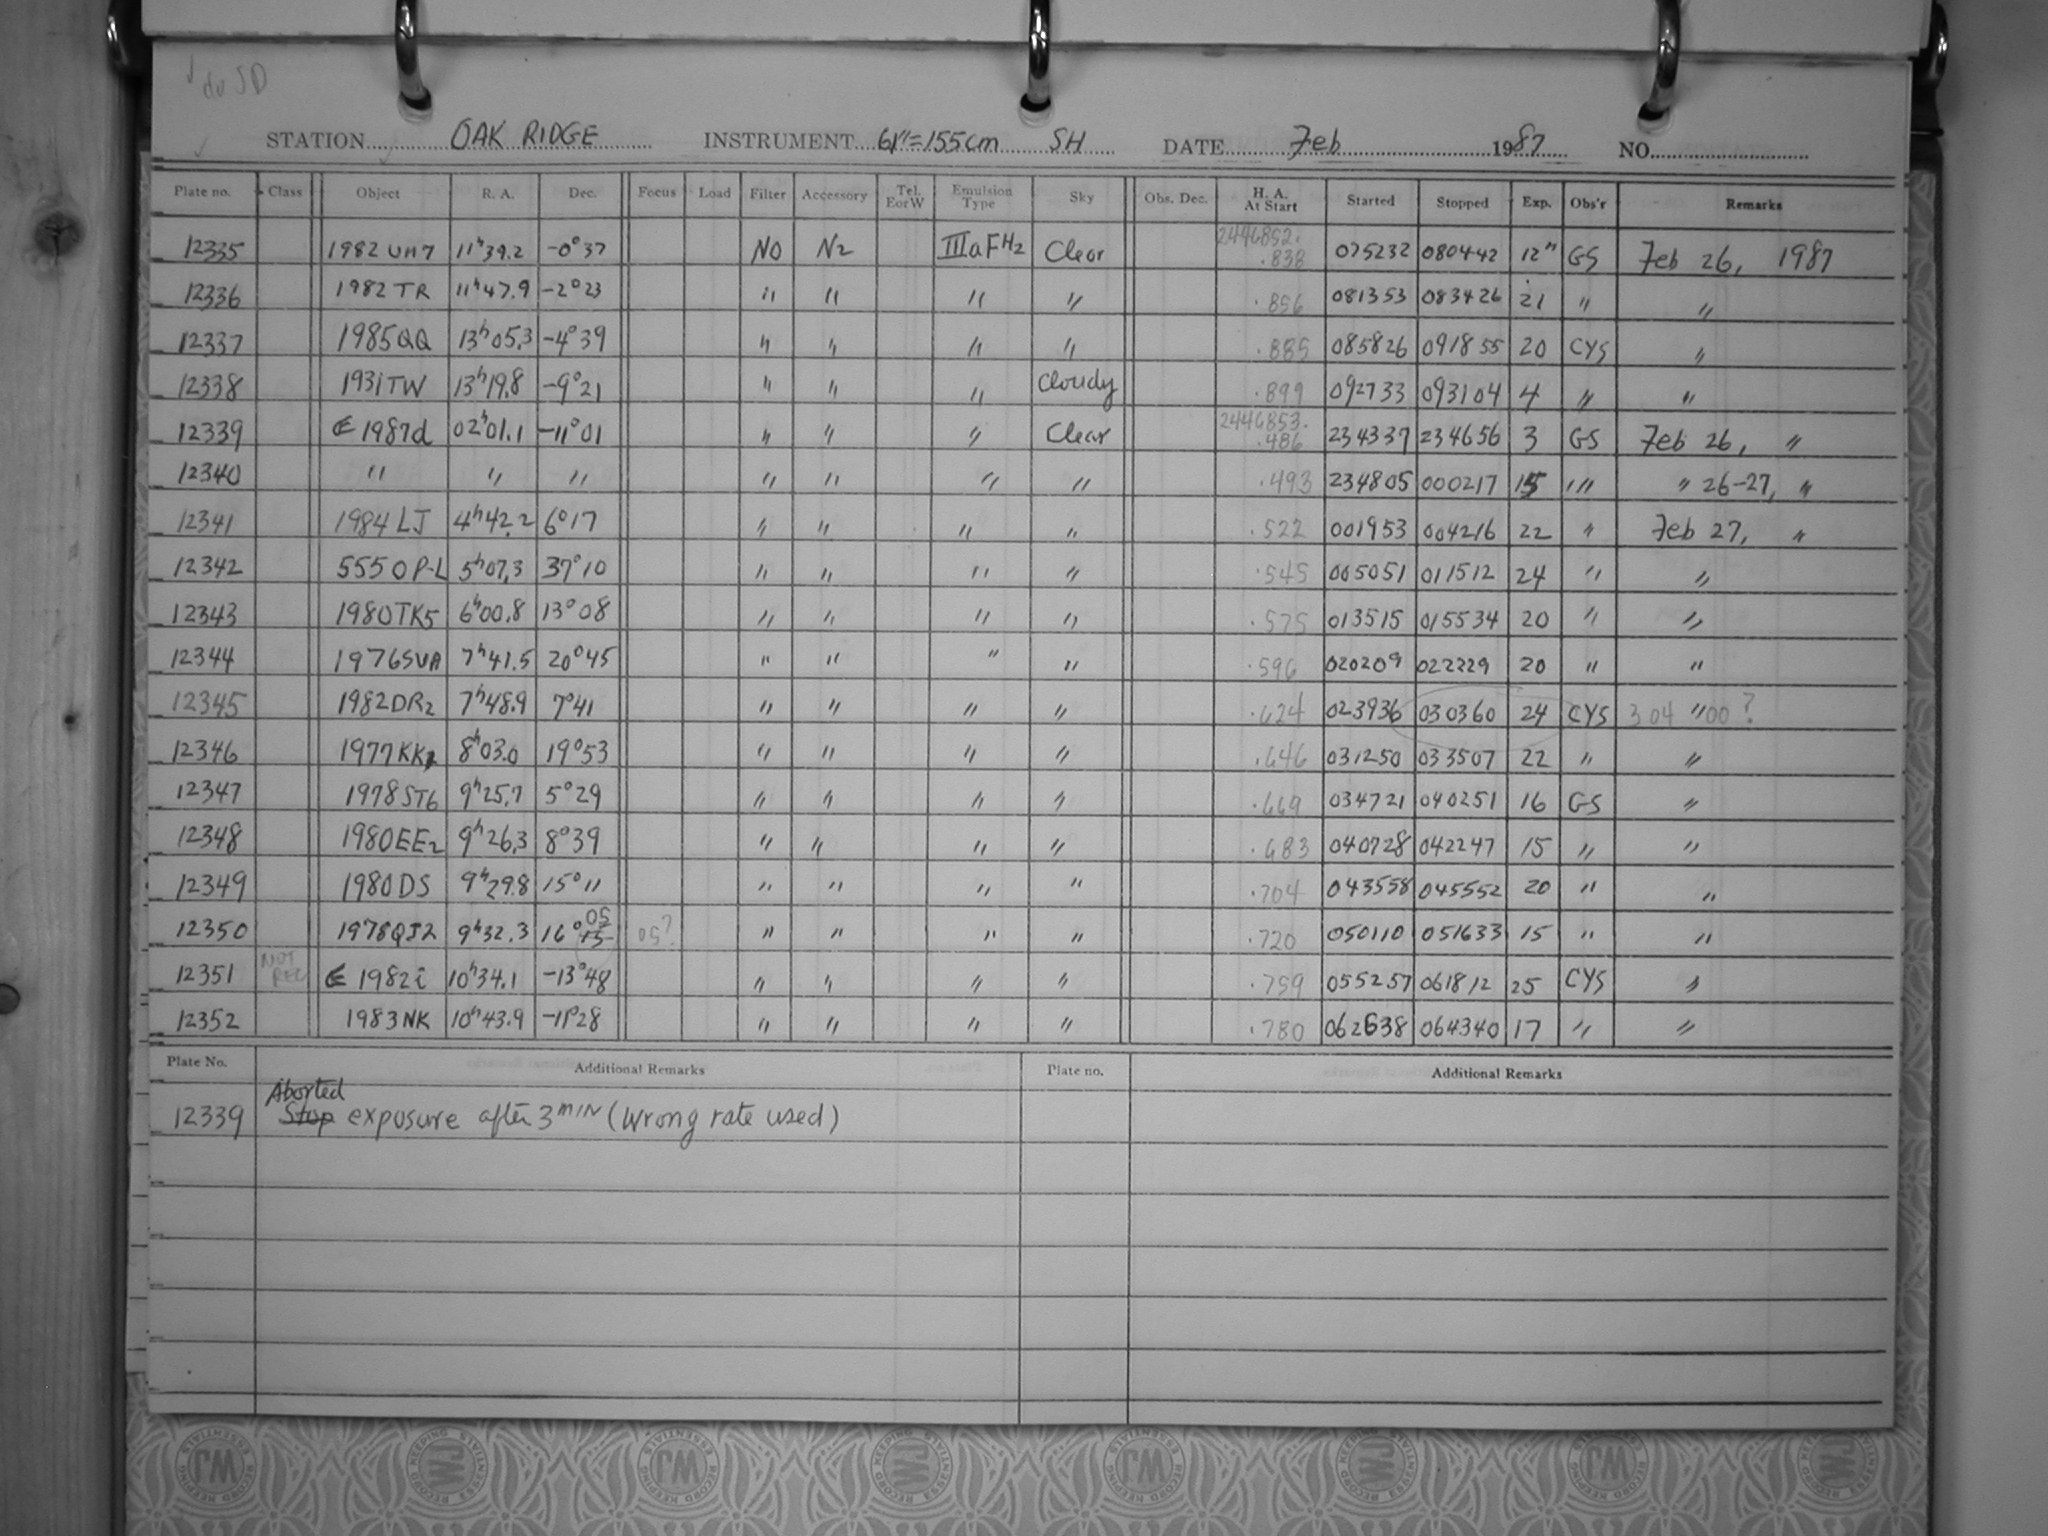 ✓ du SD
STATION OAK RIDGE INSTRUMENT 61"=155cm SH DATE Feb 1987 NO.
Plate no. Class Object R. A. Dec. Focus Load Filter Accessory Tel. EorW Emulsion Type Sky Obs. Dec. H. A. At Start Started Stopped Exp. Obs'r Remarks
12335 1982 UH7 11ʰ39.2 -0°37 NO N2 IIIaFH2 Clear 2446852. .838 075232 080442 12ᵐ GS Feb 26, 1987
12336 1982 TR 11ʰ47.9 -2°23 " " " " .856 081353 083426 21 " "
12337 1985QQ 13ʰ05.3 -4°39 " " " " .885 085826 091855 20 CYS "
12338 1931TW 13ʰ19.8 -9°21 " " " Cloudy .899 092733 093104 4 " "
12339 C 1987d 02ʰ01.1 -11°01 " " " Clear 2446853. .486 234337 234656 3 GS Feb 26, "
12340 " " " " " " " .493 234805 000217 15 " " 26-27, "
12341 1984 LJ 4ʰ42.2 6°17 " " " " .522 001953 004216 22 " Feb 27, "
12342 5550 P-L 5ʰ07.3 37°10 " " " " .545 005051 011512 24 " "
12343 1980TK5 6ʰ00.8 13°08 " " " " .575 013515 015534 20 " "
12344 1976SVA 7ʰ41.5 20°45 " " " " .596 020209 022229 20 " "
12345 1982DR2 7ʰ48.9 7°41 " " " " .624 023936 030360 24 CYS 3 04 " 00 ?
12346 1977KK1 8ʰ03.0 19°53 " " " " .646 031250 033507 22 " "
12347 1978ST6 9ʰ25.7 5°29 " " " " .669 034721 040251 16 GS "
12348 1980EE2 9ʰ26.3 8°39 " " " " .683 040728 042247 15 " "
12349 1980DS 9ʰ29.8 15°11 " " " " .704 043558 045552 20 " "
12350 1978QJ2 9ʰ32.3 16°15 05 05? " " " " .720 050110 051633 15 " "
12351 NOT REC C 1982i 10ʰ34.1 -13°48 " " " " .759 055257 061812 25 CYS "
12352 1983NK 10ʰ43.9 -11°28 " " " " .780 062638 064340 17 " "
Plate No. Additional Remarks Plate no. Additional Remarks
Aborted
12339 Stop exposure after 3 MIN (Wrong rate used)
JM RECORD KEEPING ESSENTIALS